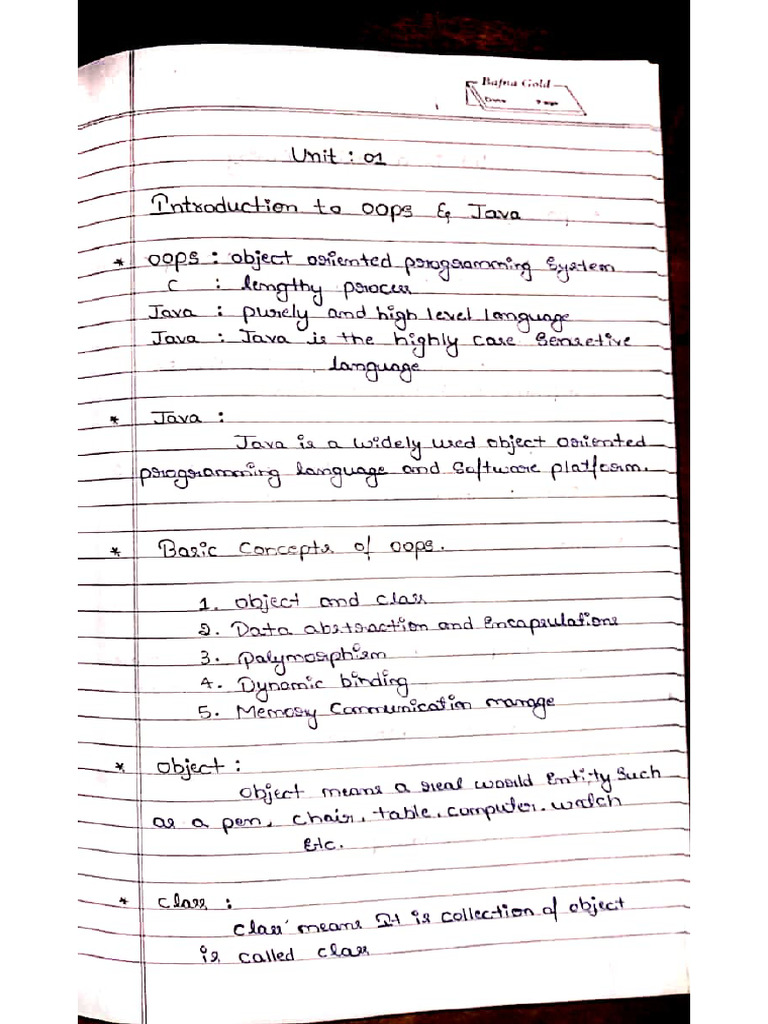 Bafna Gold
Date Page
Unit : 01
Introduction to OOPS & Java
* OOPS : Object oriented programming System
C : lengthy process
Java : purely and high level language
Java : Java is the highly case Sensretive
language
* Java :
Java is a widely used object oriented
programming language and Software platform.
* Basic Concepts of OOPS.
1. Object and class
2. Data abstraction and Encapsulations
3. Palymorphism
4. Dynamic binding
5. Memory Communication manage
* Object :
Object means a real would Entity Such
as a pen, chair, table, computer. watch
Etc.
* Class :
Class means It is collection of object
is called class